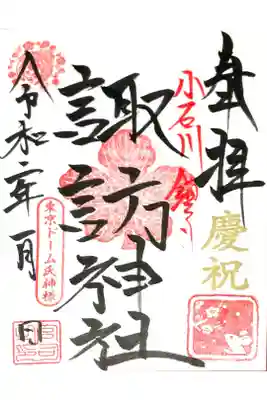 奉拝
慶祝
小石川
諏訪神社
東京ドーム氏神様
令和二年一月 日